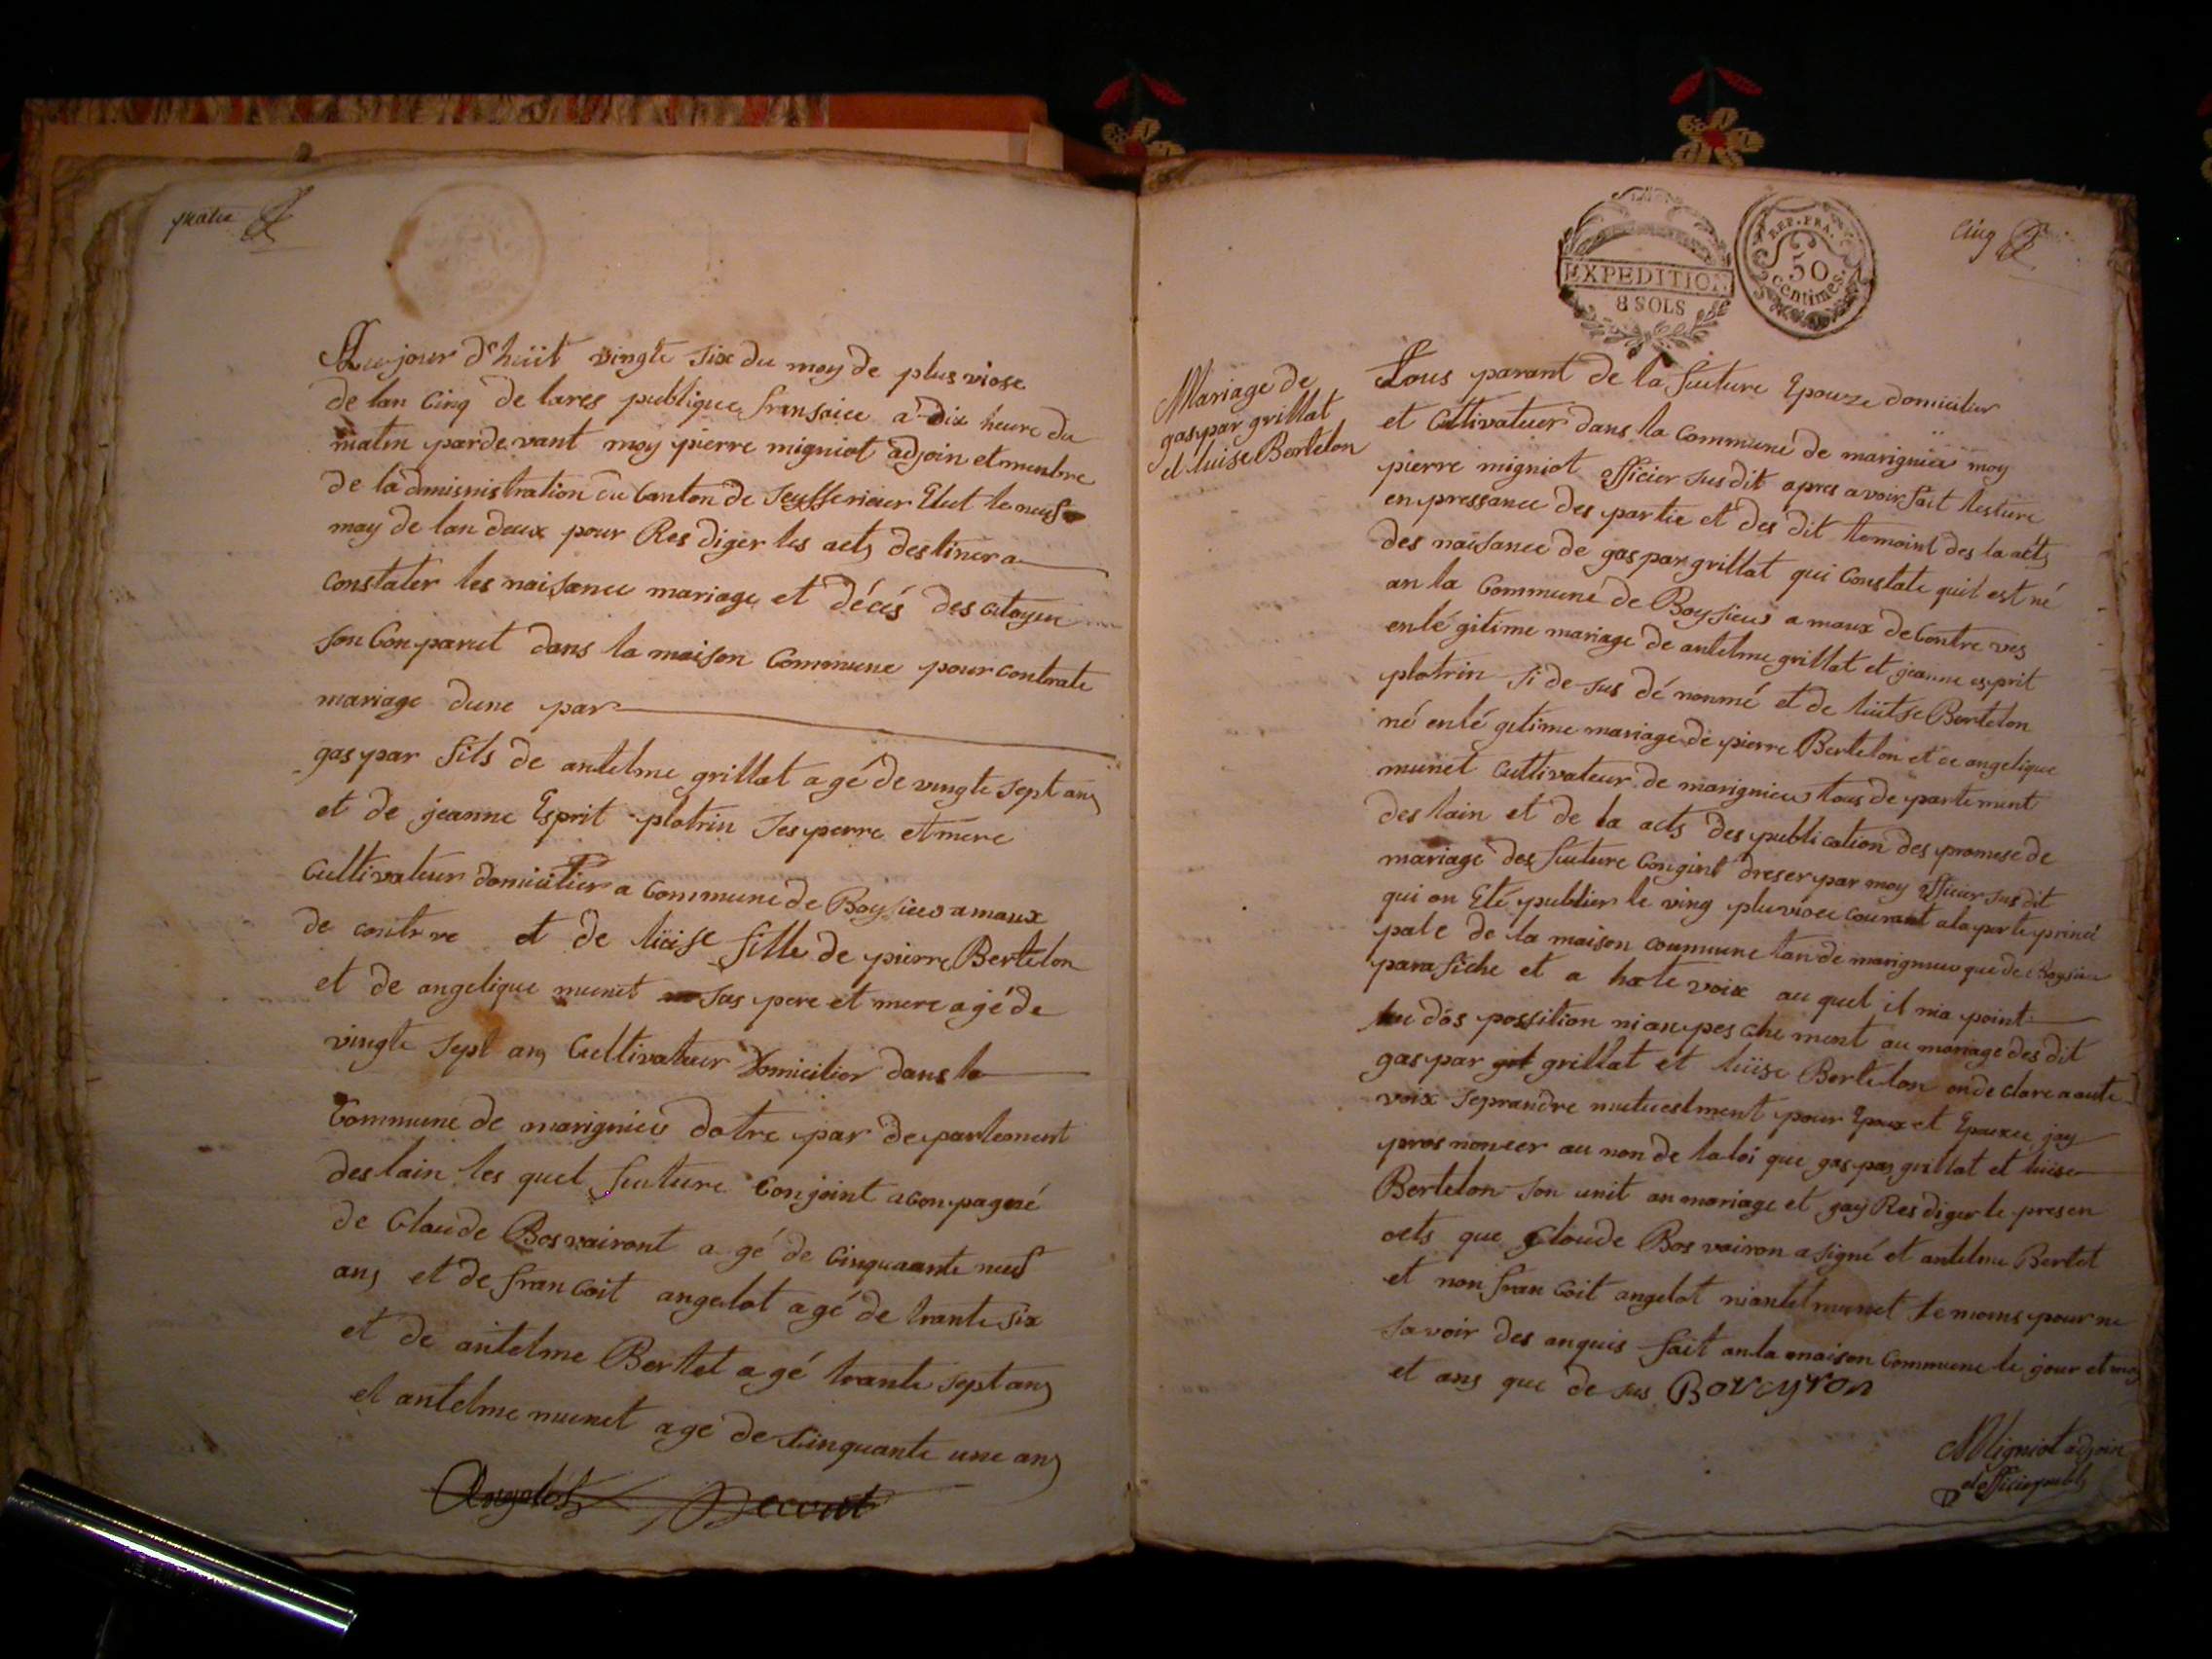 quatre
Aujour d'huit vingte six du moy de plus viose
de lan Cinq de lares publique fransaice a dix heure du
matin parde vant moy pierre migniot adjoin et menbre
de la dmisnistration du Canton de Seysserieux Elut le neuf
may de lan deux pour Res diger les acts destiner a
Constater les naisance mariage et décés des citoyen
son Conparut dans la maison Commune pour contrate
mariage dune par
gaspar fils de antelme grillat agé de vingte sept ans
et de jeanne Esprit platrin ses perre et mere
Cultivateur domicilier a Commune de Boysieu a maux
de contrve et de lüise fille de pierre Bertelon
et de angelique munet sas pere et mere agé de
vingte sept ans Cultivateur Domicilier dans la
Commune de marignieu dotre par departement
des lain les quel fuiture Conjoint acompagné
de Claude Bosvairont a gé de Cinquaante neuf
ans et de fran Coit angelot agé de trante six
et de antelme Bertet agé trante sept ans
et antelme munet age de Cinquante une ans
Angelot
Cinq
EXPEDITION
8 SOLS
REP. FRA.
50
centimes.
Mariage de
gaspar grillat
et luise Bertelon
Tous parant de la fuiture Epouze domicilier
et Cultivateur dans la Commune de marignieu moy
pierre migniot officier susdit apres avoir fait lesture
en pressance des partie et des dit temoint des la acts
des naisance de gaspar grillat qui Constate quil est né
an la Commune de Boysieu a maux de Contre ves
enlé gitime mariage de antelme grillat et jeanne esprit
platrin si de sus dé nonmé et de lüitse Bertelon
né enlé getime mariage de pierre Bertelon et de angelique
munet Cultivateur de marignieu tous de partement
des lain et de la acts des publication des promese de
mariage des fuiture Congint dreser par moy officier susdit
qui on Eté publier le ving pluviose courant a la porte princi
pale de la maison commune tan de marignieu que de Boysieu
parafiche et a hate voix au quel il nia point
eu dos possition ni anpes che ment au mariage des dit
gaspar grillat et lüise Bertelon on de clare a aute
voix seprandre mutuelment pour Epoux et Epouxe jay
pros noncer au non de la loi que gaspar grillat et luise
Bertelon son unit an mariage et jay Res diger le presen
acts que Cloude Bos vairon a signé et antelme Bertet
et non fran Coit angelot ni antelmunet temoins pour ne
savoir des anquis fait an la maison Commune le jour et moy
et ans que de sus Boveyron
Migniot adjoin
et officier publ